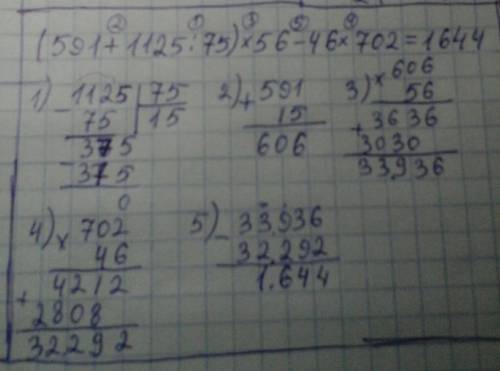 ② ① ③ ⑤ ④
(591+1125:75)×56-46×702=1644
1) 1125 | 75
- 75 | 15
375
- 375
0
2) + 591
15
606
3) × 606
56
+ 3636
3030
33936
4) × 702
46
+ 4212
2808
32292
5) - 33936
32292
1.644